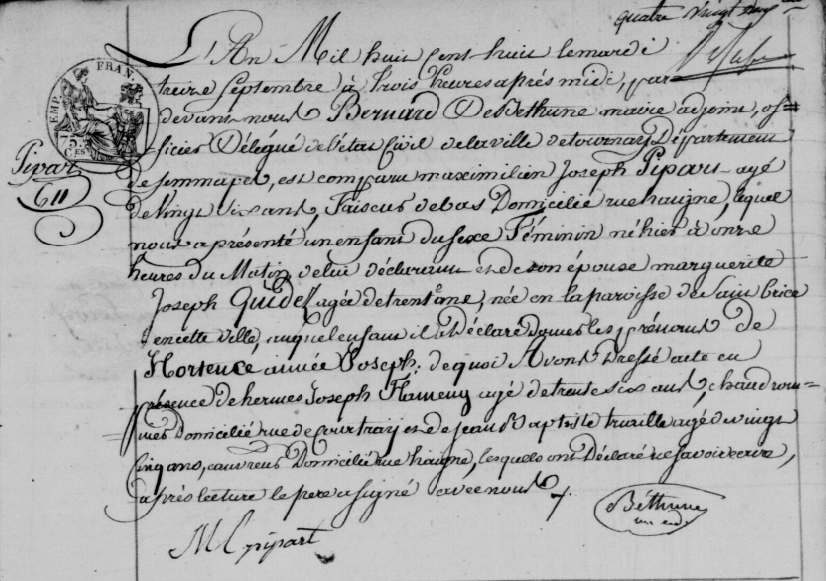 quatre vingt
L'An Mil huit Cent huit le mardi
treize Septembre, à trois heures après midi, par
devant nous Bernard DeBéthune maire adjoint, of=
=ficier Délégué de l'état Civil de la ville de tournay Département
de jemmapes, est comparu maximilien Joseph Pipart agé
de vingt six ans, Faiseur de bas Domicilié rue haigne, lequel
nous a présenté un enfant du sexe Féminin né hier à onze
heures du Matin de lui déclarant et de son épouse marguerite
Joseph Guidet agée de trente ans, née en la paroisse de Saint brice
en cette ville, auquel enfant il a Déclaré donner les prénoms de
Hortence aimée Joseph; de quoi Avons Dressé acte en
présence de hermes Joseph Flament agé de trente six ans, chaudron=
=nier Domicilié rue de Courtray et de jean Baptiste agé de vingt
Cinq ans, couvreur Domicilié rue haigne, lesquels ont Déclaré ne savoir écrire,
après lecture le pere a signé avec nous
EMP. FRAN.
75
CES
Pipart
611
Béthune
M J pipart